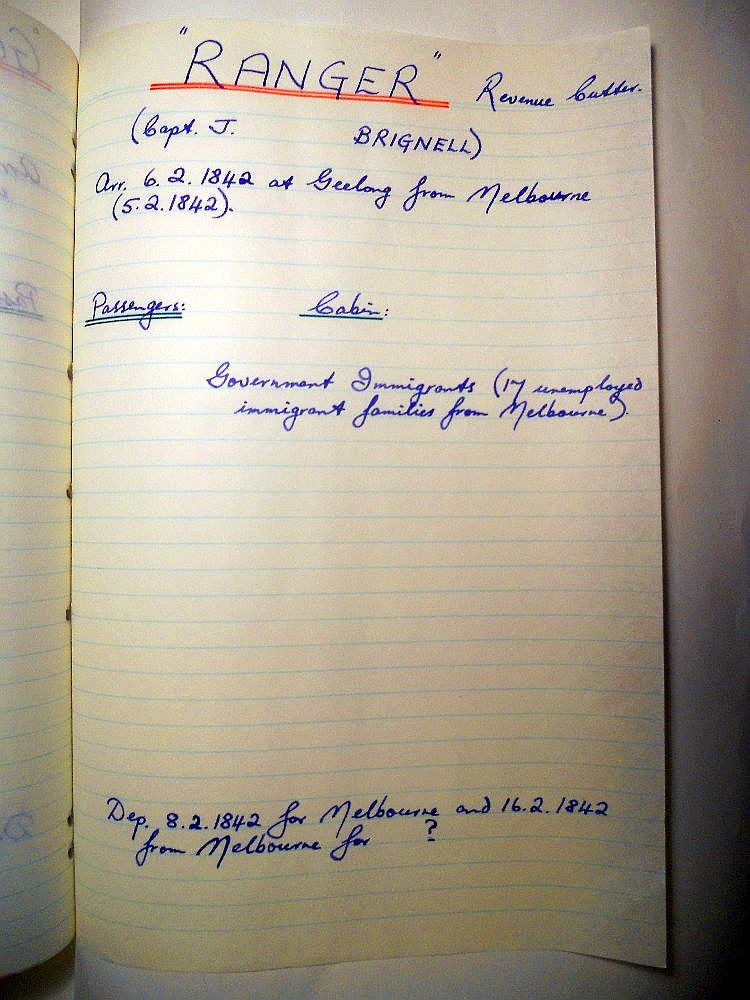 "RANGER" Revenue Cutter.
(Capt. J. BRIGNELL)
Arr. 6.2.1842 at Geelong from Melbourne
(5.2.1842).
Passengers: Cabin:
Government Immigrants (17 unemployed
immigrant families from Melbourne).
Dep. 8.2.1842 for Melbourne and 16.2.1842
from Melbourne for ?